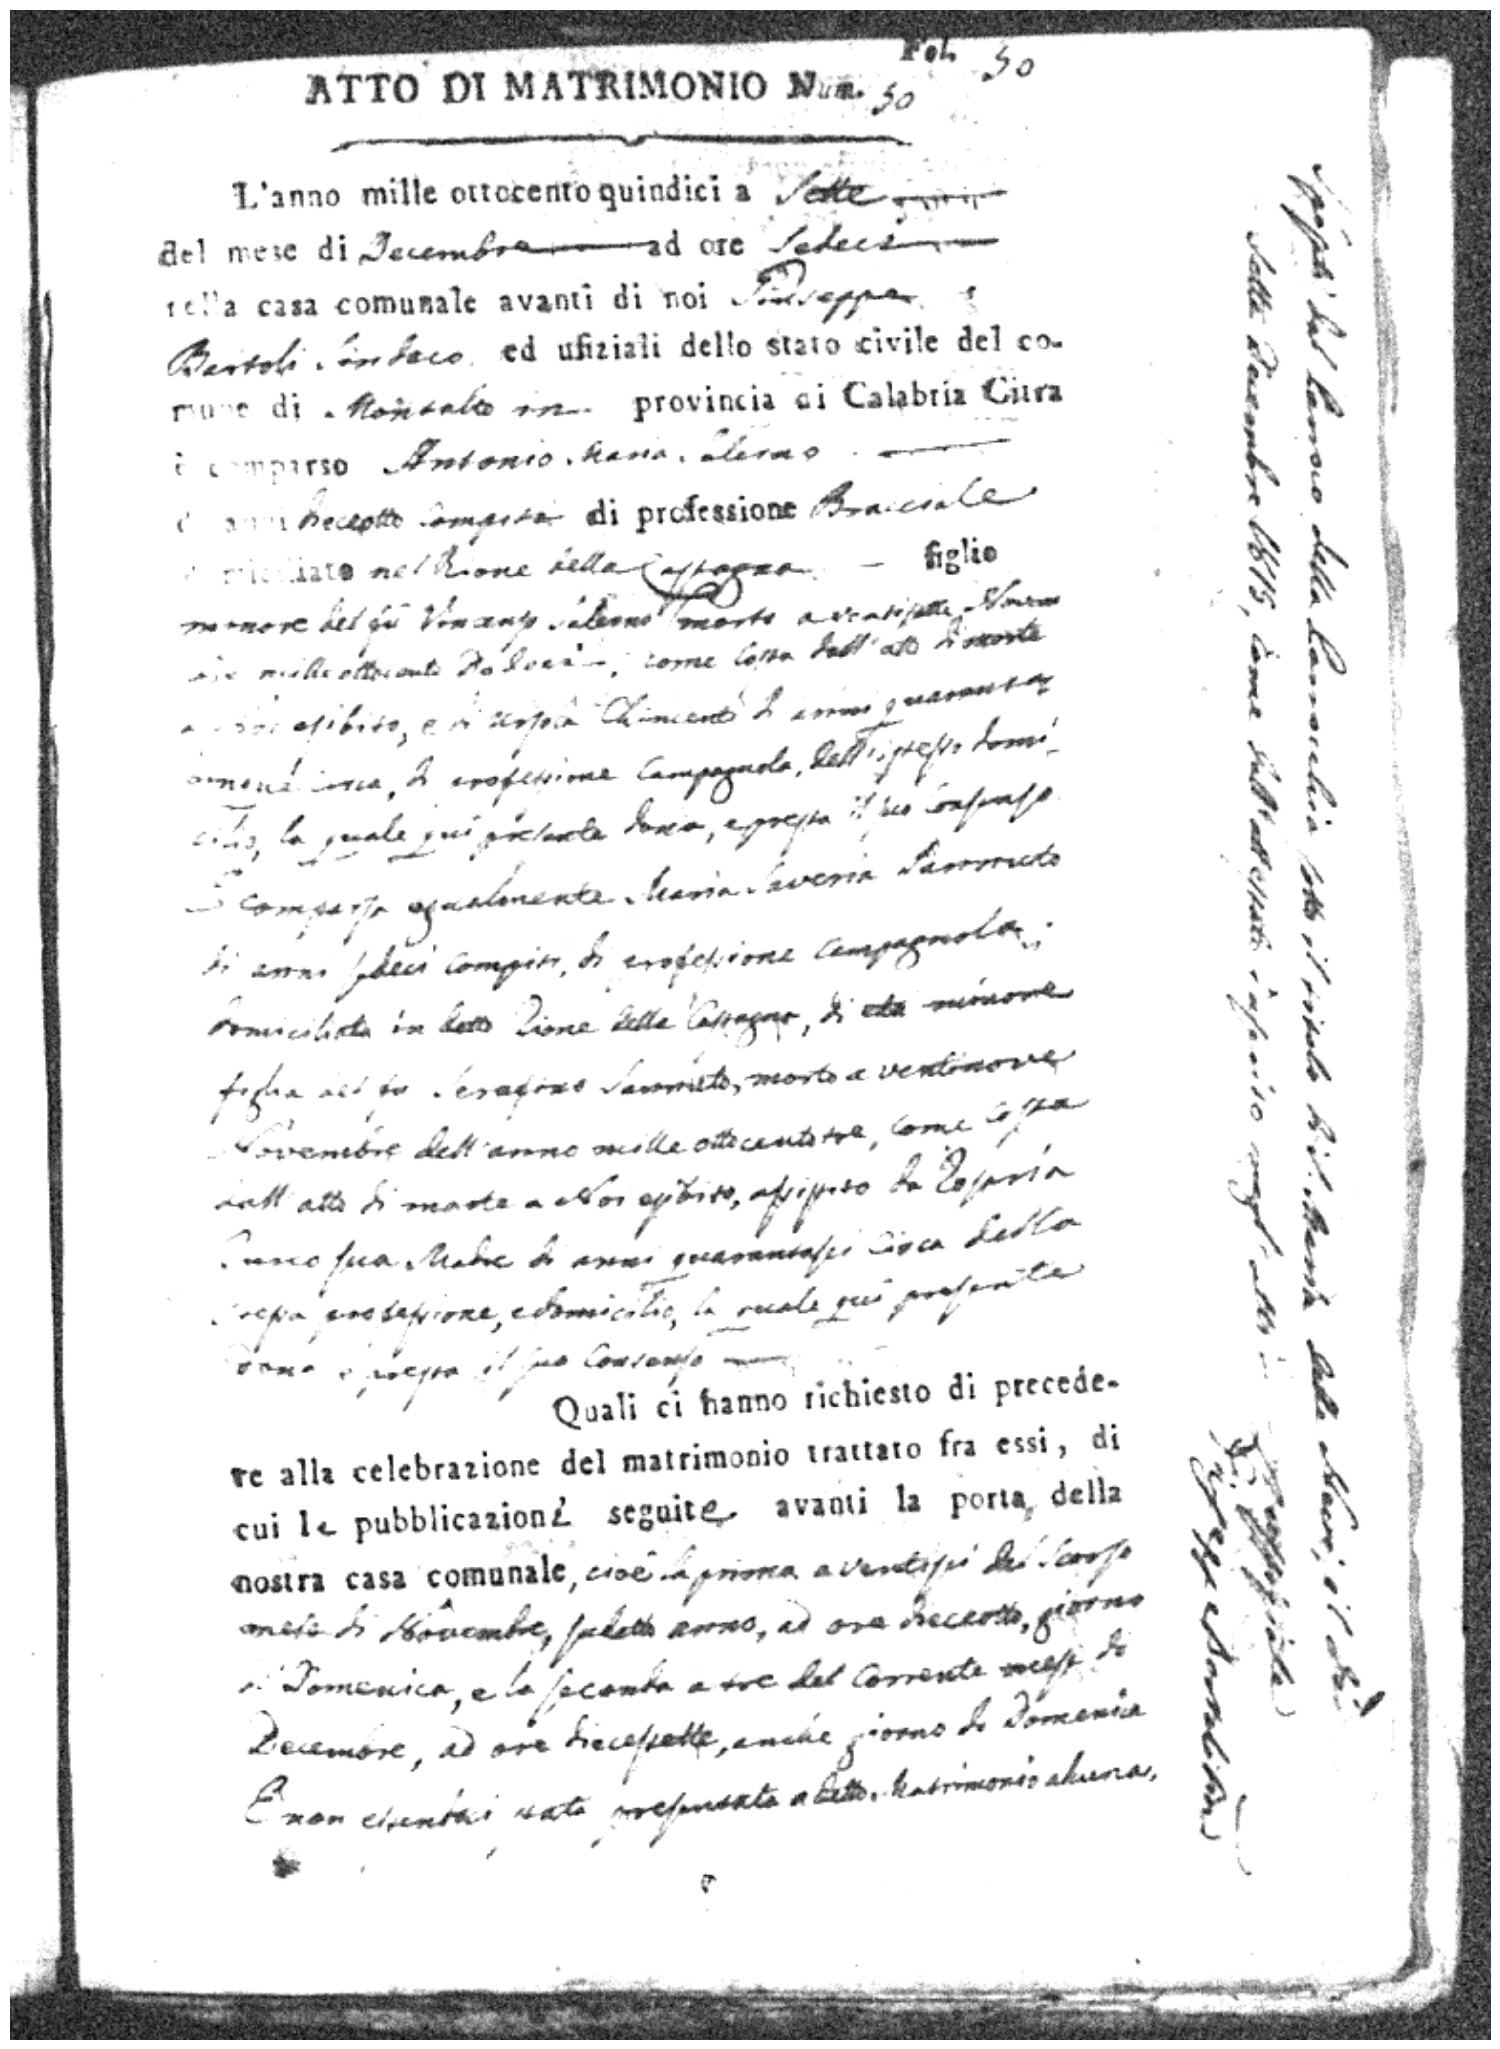 Fol. 50
ATTO DI MATRIMONIO Num. 50
L'anno mille ottocento quindici a Sette
del mese di Decembre ad ore Sedeci
nella casa comunale avanti di noi Giuseppe
Bartoli Sindaco ed ufiziali dello stato civile del co-
mune di Montalto in provincia di Calabria Citra
è comparso Antonio Maria Salerno
di anni dieceotto compiti di professione Bracciale
domiciliato nel Rione della Castagna figlio
minore del fù Vincenzo Salerno morto a ventisette Novem
bre mille ottocento, come costa dall'atto di morte
a Noi esibito, e di Chimenti di anni quaranta
nove circa, di professione Campagnola, dell'istesso domi-
cilio, la quale quì presente dona, e presta il suo consenso
È comparsa egualmente Maria Saveria Sammuto
di anni sedeci compiti, di professione campagnola
domiciliata in detto Rione della Castagna, di età minore
figlia del fu Serafino Sammuto, morto a ventinove
Novembre dell'anno mille ottocento tre, come costa
dall'atto di morte a Noi esibito, assistito da Rosaria
sua Madre di anni quarantasei circa della
stessa professione, e domicilio, la quale quì presente
dona e presta il suo consenso
Quali ci hanno richiesto di precede-
re alla celebrazione del matrimonio trattato fra essi, di
cui le pubblicazioni seguite avanti la porta della
nostra casa comunale, cioè la prima a ventisei del scorso
mese di Novembre, sudetto anno, ad ore dieceotto, giorno
di Domenica, e la seconda a tre del corrente mese di
Decembre, ad ore diecessette, anche giorno di Domenica
E non essendosi stata presentata a detto Matrimonio alcuna
Sposati dal Parroco della Parrocchia sotto il titolo di S. Maria della Neve, il dì
Sette Decembre 1815, come dall'attestato inserito negl'atti